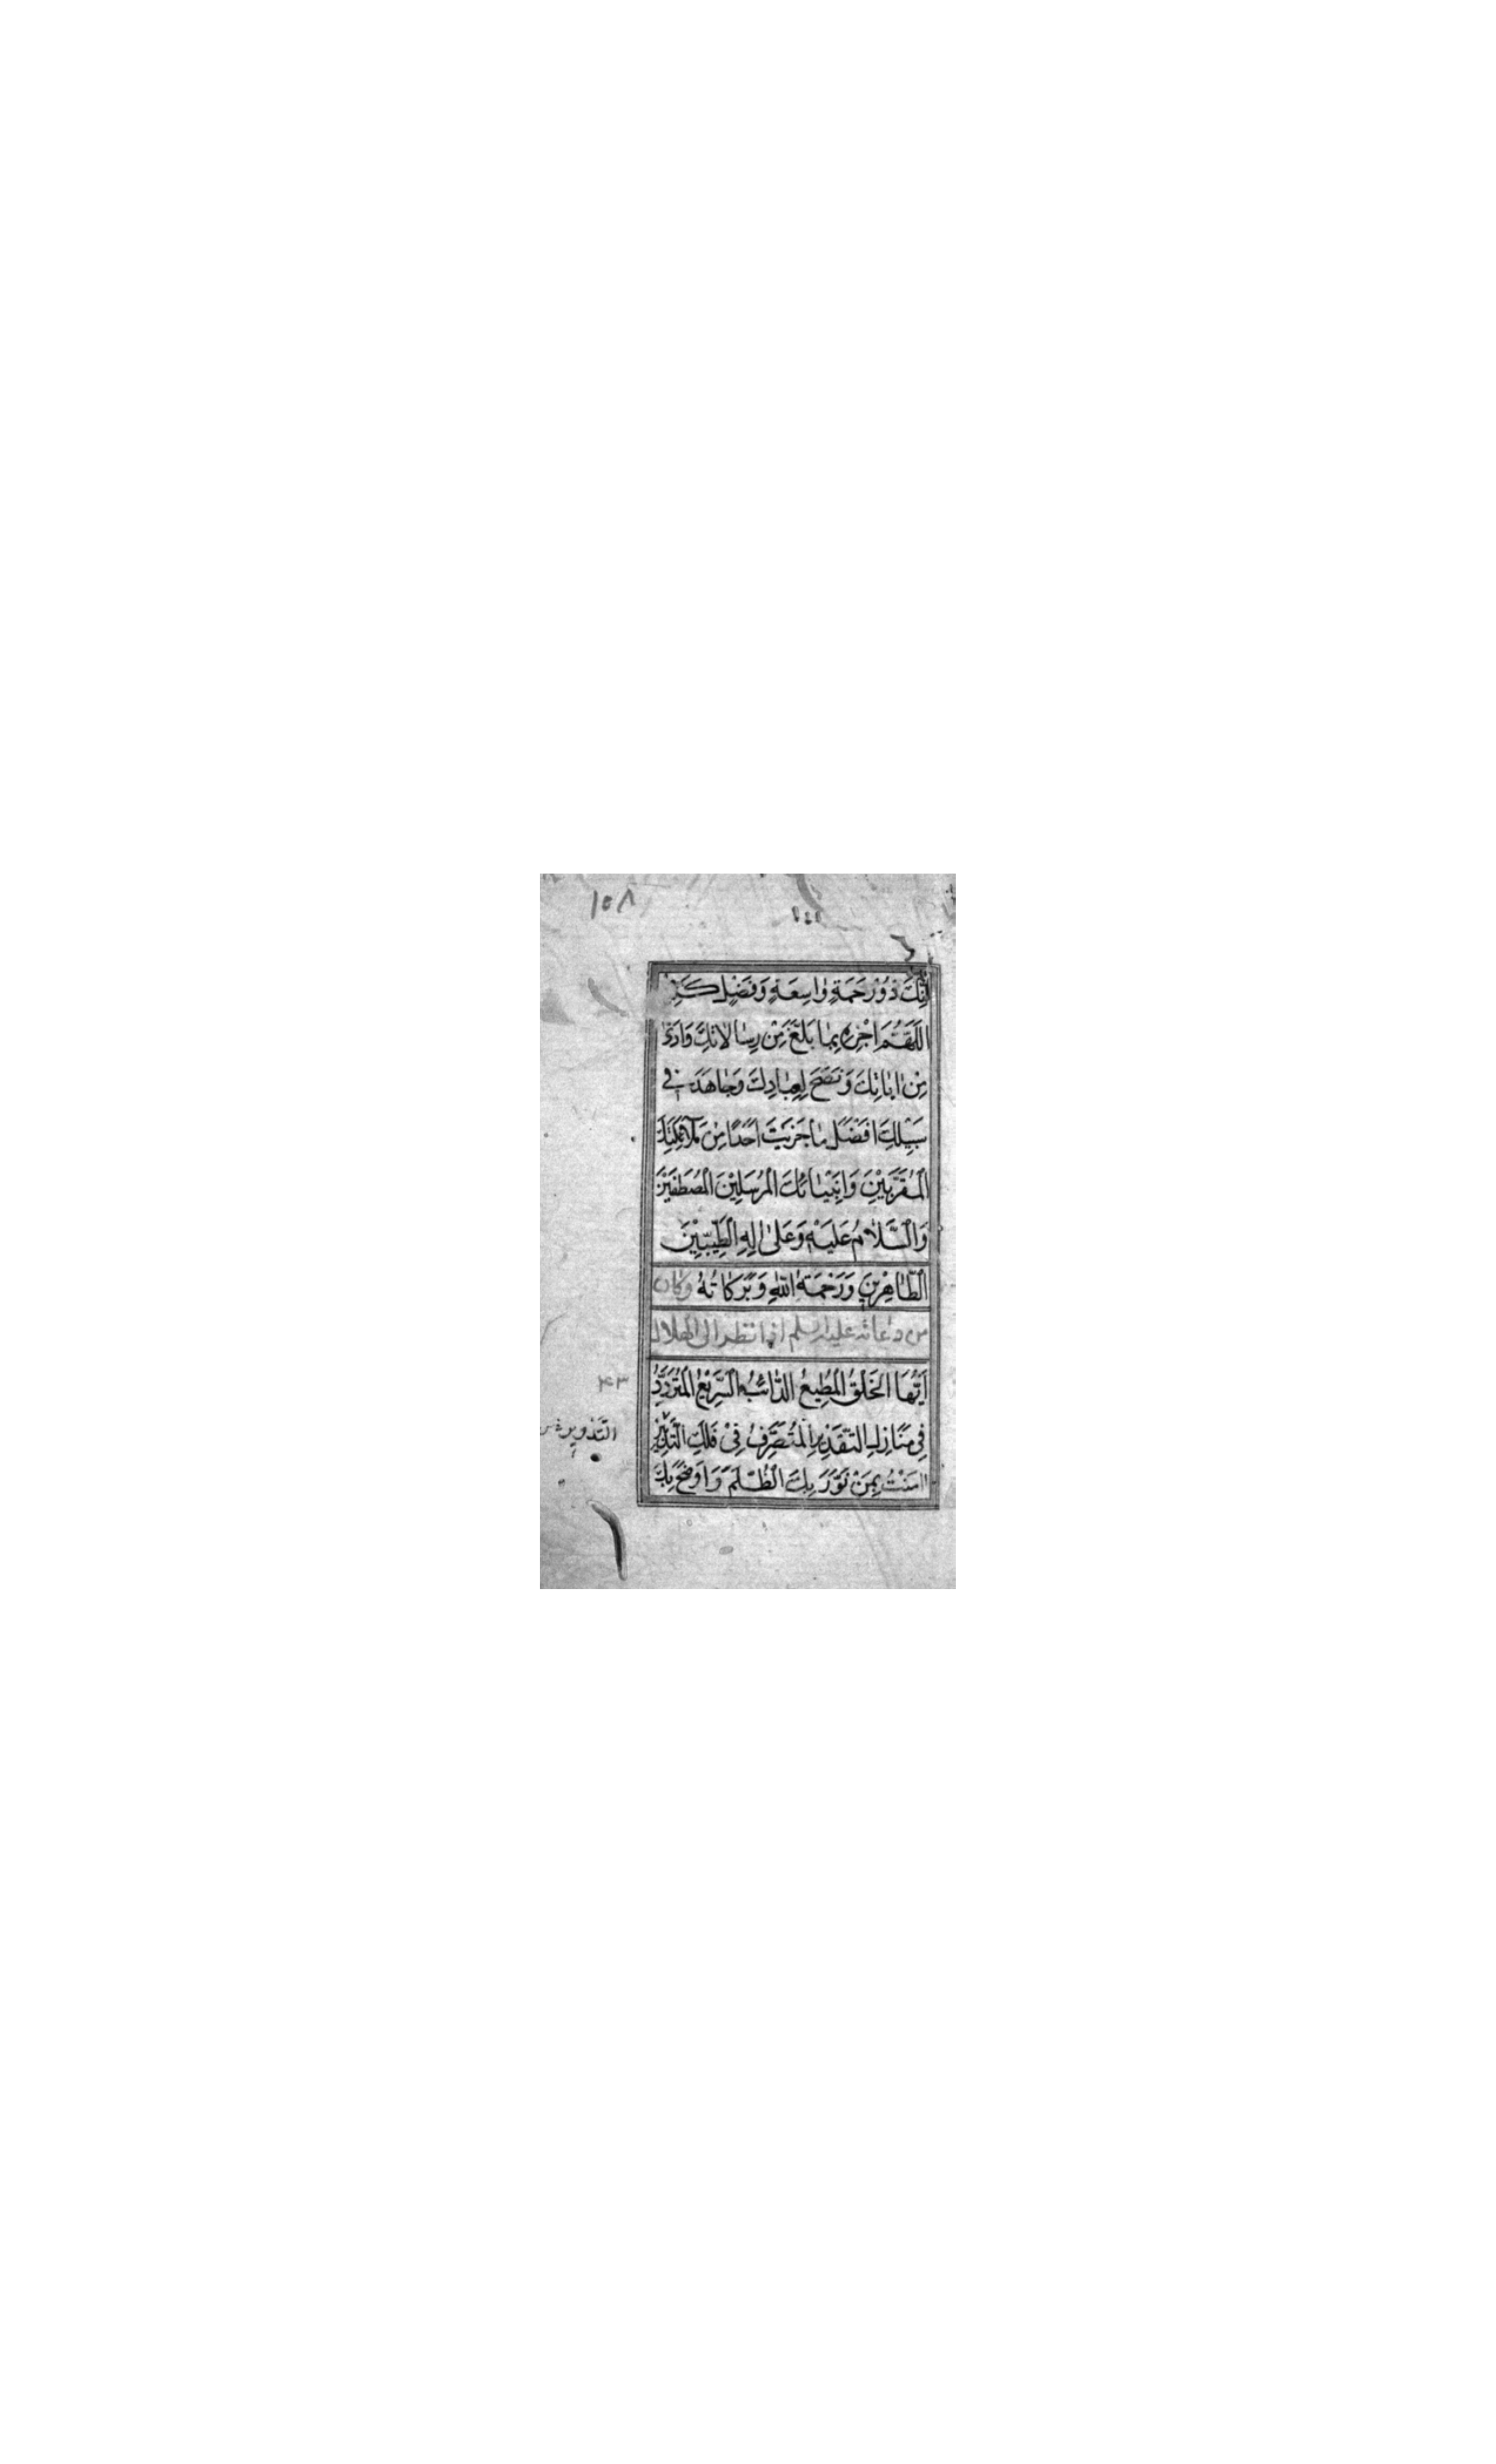 ١٥٨
اِنَّكَ ذُوْرَحْمَةٍ وٰاسِعَةٍ وَفَضْلٍ كَرِيْمٍ
اَللّٰهُمَّ اجْزِهِ بِمٰا بَلَّغَ مِنْ رِسٰالاتِكَ وَاَدّٰى
مِنْ اٰيٰاتِكَ وَنَصَحَ لِعِبٰادِكَ وَجٰاهَدَ فِي
سَبِيْلِكَ اَفْضَلَ مٰا جَزَيْتَ اَحَدًا مِنْ مَلٰٓئِكَتِكَ
الْمُقَرَّبِيْنَ وَاَنْبِيٰائِكَ الْمُرْسَلِيْنَ الْمُصْطَفَيْنَ
وَالسَّلَامُ عَلَيْهِ وَعَلٰى اٰلِهِ الطَّيِّبِيْنَ
الطّٰاهِرِيْنَ وَرَحْمَةُ اللّٰهِ وَبَرَكٰاتُهُ وكان
من دعائه عليه السلم اذا نظر الى الهلال
اَيُّهَا الْخَلْقُ الْمُطِيعُ الدّٰائِبُ السَّرِيْعُ الْمُتَرَدِّدُ
٤٣
فِي مَنَازِلِ التَّقْدِيْرِ الْمُتَصَرِّفُ فِيْ فَلَكِ التَّدْبِيْرِ
التَّدْويرِ
اٰمَنْتُ بِمَنْ نَوَّرَ بِكَ الظُّلَمَ وَاَوْضَحَ بِكَ